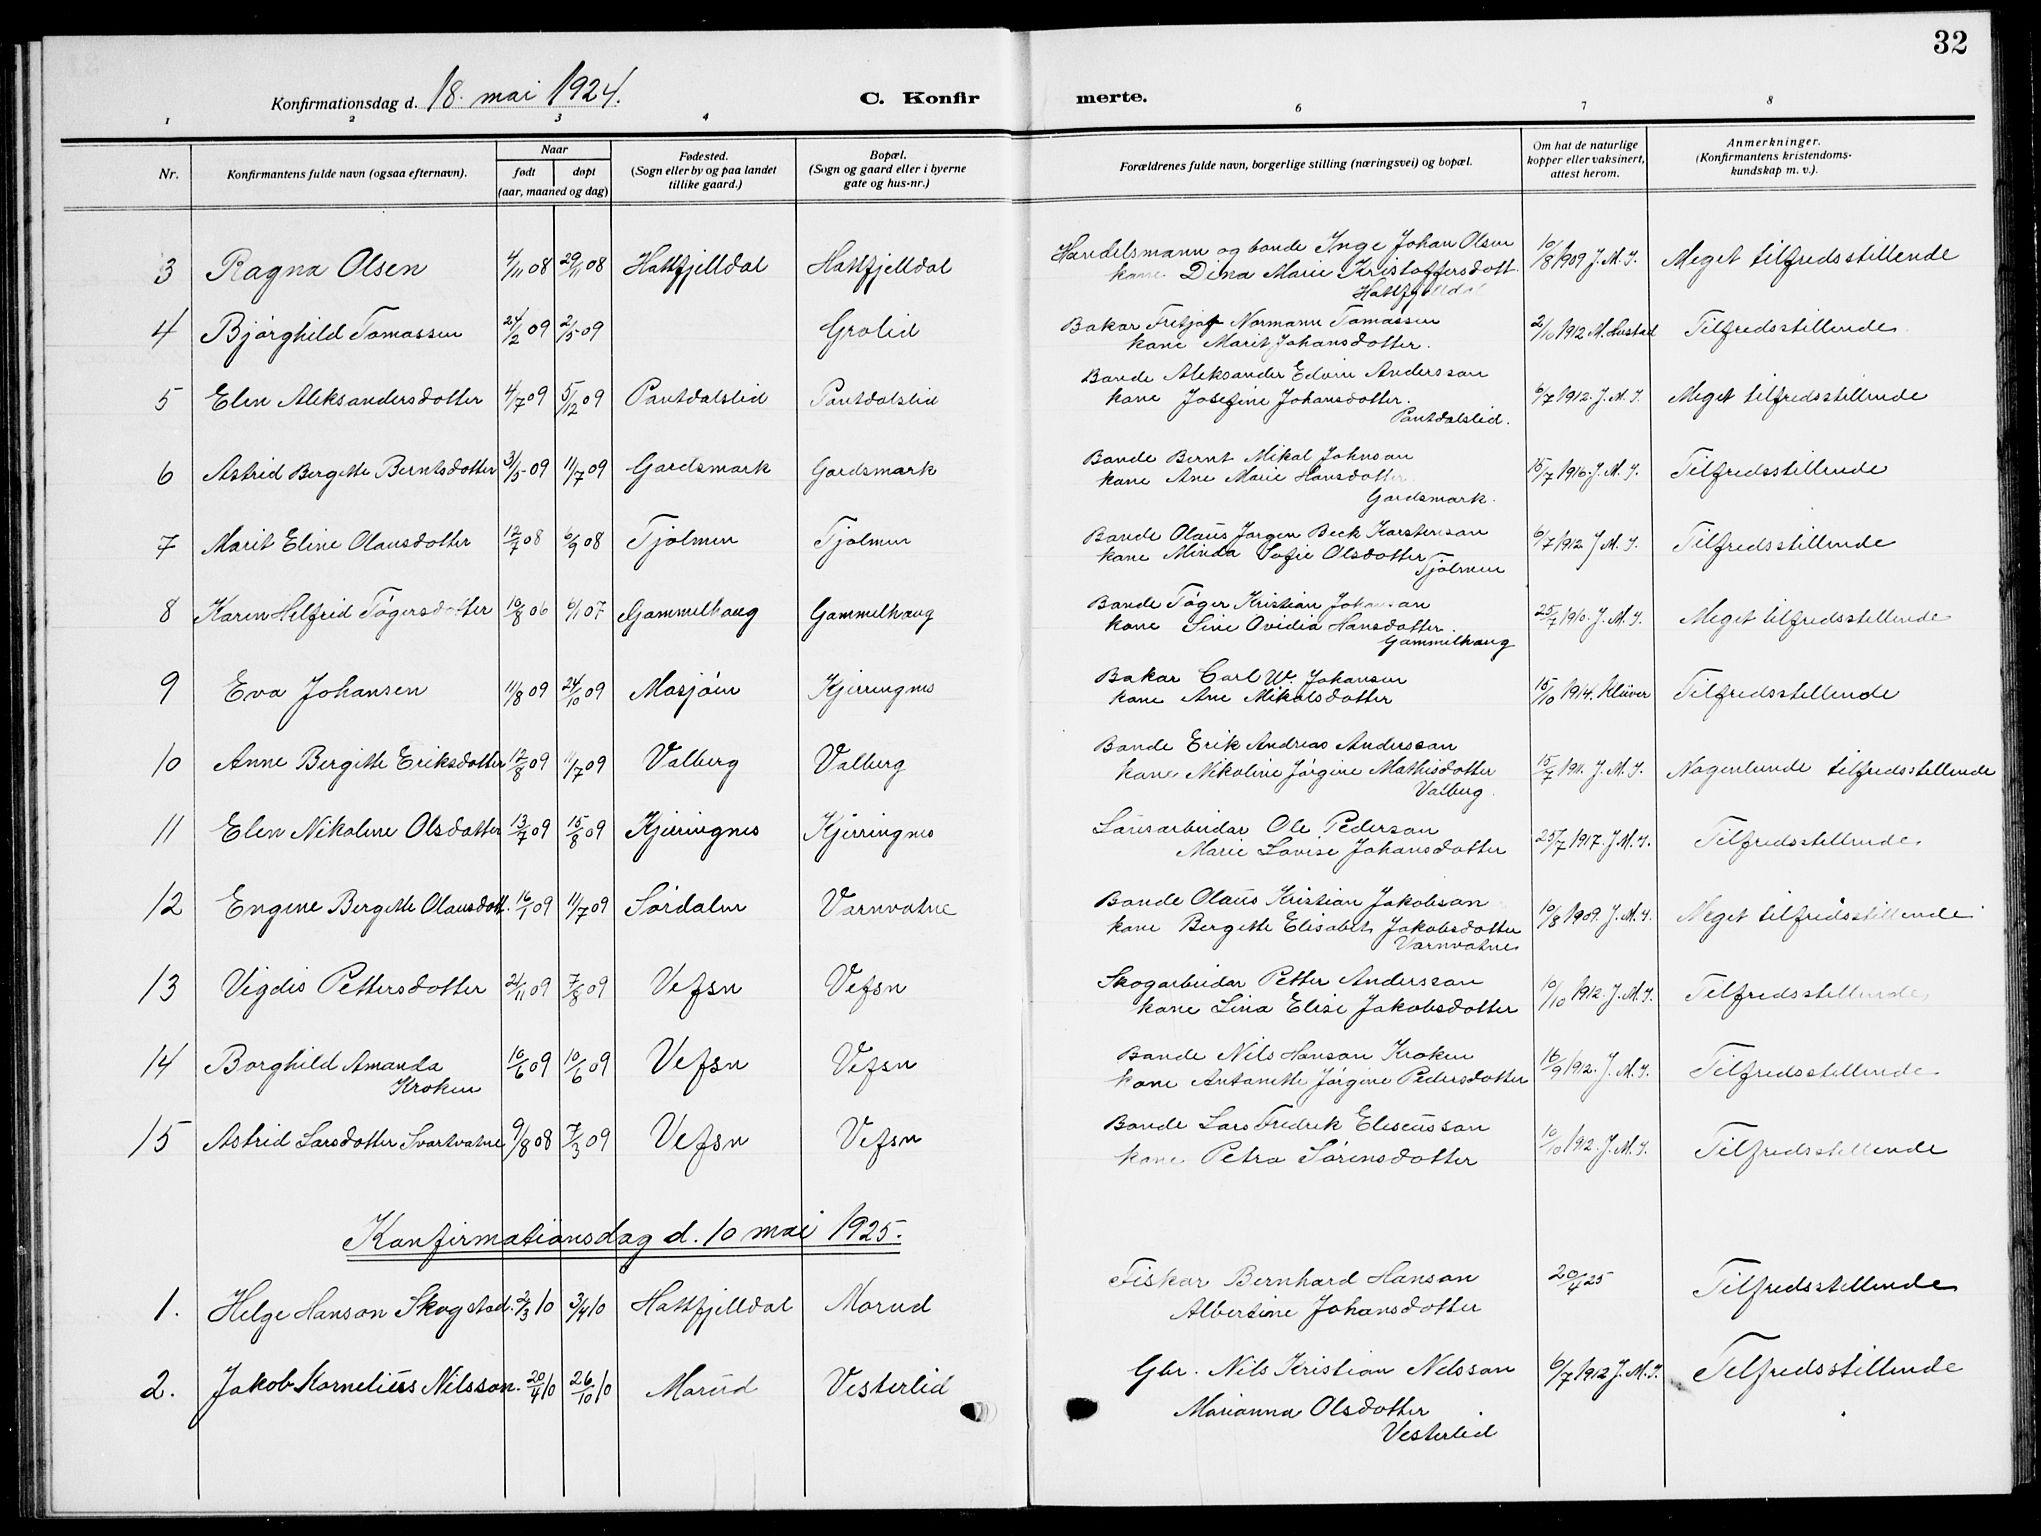 32
Konfirmationsdag d. 18. mai 1924. C. Konfirmerte.
1 2 3 4 6 7 8
Nr. Konfirmantens fulde navn (ogsaa efternavn). Naar født døpt (aar, maaned og dag) Fødested. (Sogn eller by og paa landet tillike gaard.) Bopæl. (Sogn og gaard eller i byerne gate og hus-nr.) Forældrenes fulde navn, borgerlige stilling (næringsvei) og bopæl. Om hat de naturlige kopper eller vaksinert, attest herom. Anmerkninger. (Konfirmantens kristendoms-kundskap m. v.).
3 Ragna Olsen 4/11 08 29/11 08 Hattfjelldal Hattfjelldal Handelsmann og bonde Inge Johan Olsen 10/8 1909 J. M. I. Meget tilfredsstillende
kone Dina Marie Kristoffersdott.
Hattfjelldal
4 Bjørghild Tomassen 24/2 09 2/5 09 Grolid Bakar Fritjof Normann Tomassen 2/10 1912 M. Lustad Tilfredsstillende
kone Marit Johansdotter.
5 Elen Aleksandersdotter 4/7 09 5/12 09 Pantdalslid Pantdalslid Bonde Aleksander Edvin Andersson 6/7 1912. J. M. I. Meget tilfredsstillende
kone Josefine Johansdotter.
Pantdalslid.
6 Astrid Bergitte Berntsdotter 3/5 09 11/7 09 Gardsmark Gardsmark Bonde Bernt Mikal Johnson 15/7 1916. J. M. I. Tilfredsstillende
kone Ane Marie Hansdotter
Gardsmark.
7 Marit Eline Olausdotter 12/7 08 6/9 08 Tjølmen Tjølmen Bonde Olaus Jørgen Beck Karstenson 6/7 1912 J. M. I. Tilfredsstillende
kone Minda Sofie Olsdotter
Tjolmen
8 Karen Helfrid Tøgersdotter 10/8 06 6/1 07 Gammelhaug Gammelhaug Bonde Tøger Kristian Johanson 25/7 1910. J. M. I. Meget tilfredsstillende
kone Sine Ovidia Hansdotter
Gammelhaug
9 Eva Johansen 11/8 09 24/10 09 Mosjøin Kjerringnes Bakar Carl W. Johansen 15/10 1914. Klüver Tilfredsstillende
kone Ane Mikalsdotter
10 Anne Bergitte Eriksdotter 12/8 09 11/7 09 Valberg Valberg Bonde Erik Andreas Andersson 15/7 1911. J. M. I. Nogenlunde tilfredsstillende
kone Nikoline Jørgine Mathisdotter
Valberg.
11 Elen Nikoline Olsdotter 13/7 09 15/8 09 Kjerringnes Kjerringnes Lausarbeidar Ole Pederson 25/7 1917. J. M. I. Tilfredsstillende.
Marie Lovise Johansdotter
12 Engine Bergitte Olausdott. 16/1 09 11/7 09 Sørdalen Varnvatne Bonde Olaus Kristian Jakobson 10/8 1909. J. M. I. Meget tilfredsstillende
kone Bergitte Elisabet Jakobsdotter
Varnvatne
13 Vigdis Pettersdotter 21/11 09 7/8 09 Vefsn Vefsn Skogarbeidar Petter Andersson 10/10 1912. J. M. I. Tilfredsstillende.
kone Lina Elise Jakobsdotter
14 Borghild Amanda 10/6 09 10/6 09 Vefsn Vefsn Bonde Nils Hanson Kroken 16/9 1912. J. M. I. Tilfredsstillende
Kroken kone Antanette Jørgine Pedersdotter
15 Astrid Larsdotter Svartvatne 9/8 08 7/3 09 Vefsn Vefsn Bonde Lars Fredrik Eliseusson 10/10 1912. J. M. I. Tilfredsstillende
kone Petra Sørensdotter
Konfirmationsdag d. 10 mai 1925.
1. Helge Hanson Skogstad. 2/3 10 3/4 10 Hattfjelldal Marud Fiskar Bernhard Hanson 20/4 25 Tilfredsstillende
Albertine Johansdotter
2. Jakob Kornelius Nilsson. 20/4 10 26/10 10 Marud Vesterlid Gbr. Nils Kristian Nilsson 6/7 1912 J. M. I. Tilfredsstillende
Marianna Olsdotter
Vesterlid